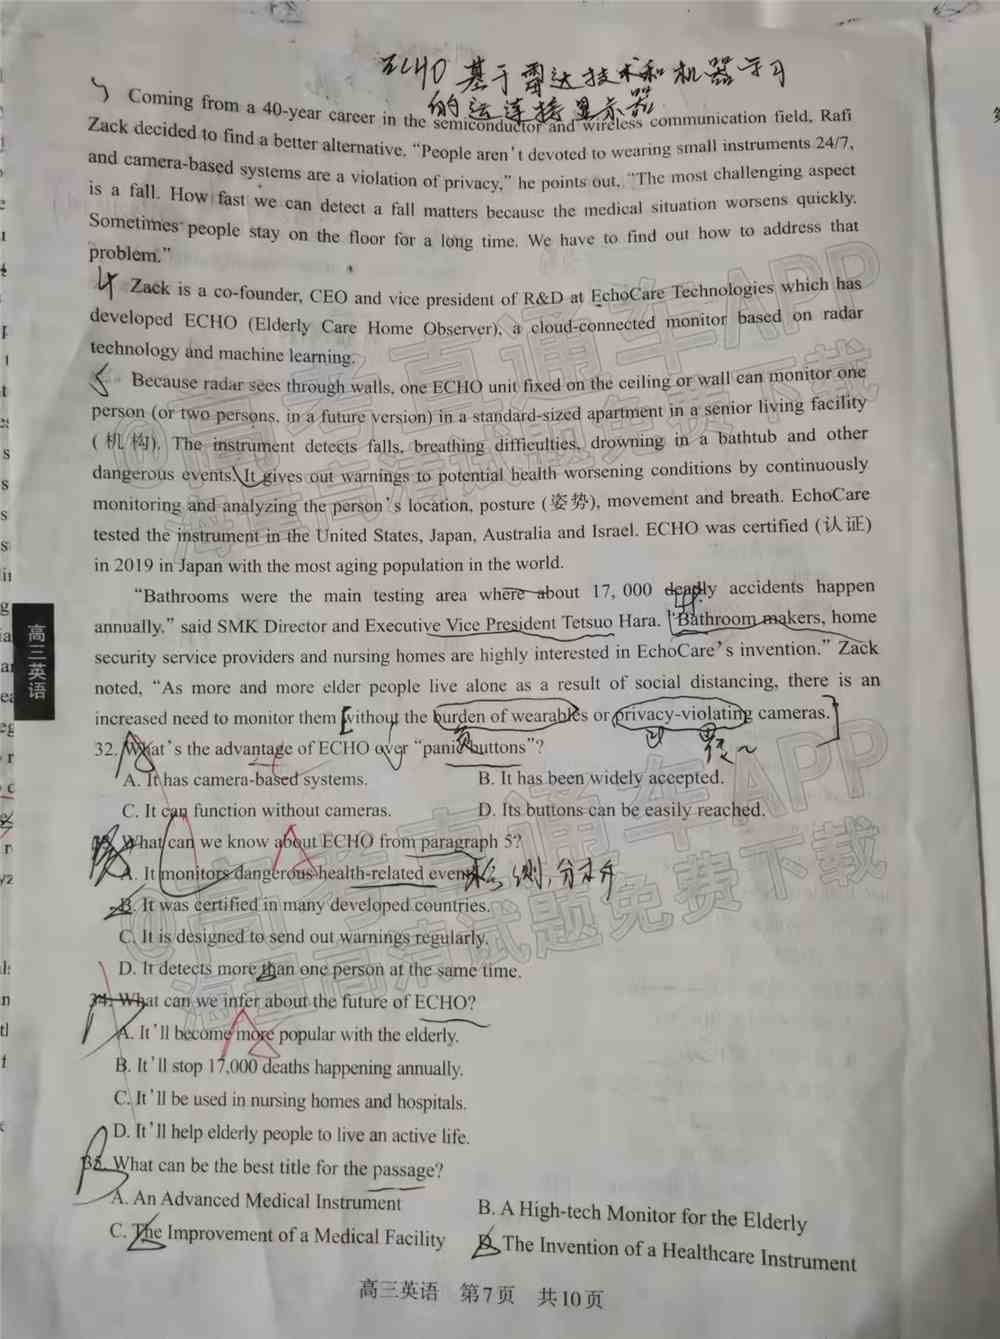 ECHO 基于雷达技术和机器学习
的运连接显示器
Coming from a 40-year career in the semiconductor and wireless communication field, Rafi
Zack decided to find a better alternative. "People aren't devoted to wearing small instruments 24/7,
and camera-based systems are a violation of privacy," he points out, "The most challenging aspect
is a fall. How fast we can detect a fall matters because the medical situation worsens quickly.
Sometimes people stay on the floor for a long time. We have to find out how to address that
problem."
4 Zack is a co-founder, CEO and vice president of R&D at EchoCare Technologies which has
developed ECHO (Elderly Care Home Observer), a cloud-connected monitor based on radar
technology and machine learning.
Because radar sees through walls, one ECHO unit fixed on the ceiling or wall can monitor one
person (or two persons, in a future version) in a standard-sized apartment in a senior living facility
(机构). The instrument detects falls, breathing difficulties, drowning in a bathtub and other
dangerous events. It gives out warnings to potential health worsening conditions by continuously
monitoring and analyzing the person's location, posture (姿势), movement and breath. EchoCare
tested the instrument in the United States, Japan, Australia and Israel. ECHO was certified (认证)
in 2019 in Japan with the most aging population in the world.
"Bathrooms were the main testing area where about 17, 000 deadly accidents happen
annually," said SMK Director and Executive Vice President Tetsuo Hara. "Bathroom makers, home
security service providers and nursing homes are highly interested in EchoCare's invention." Zack
noted, "As more and more elder people live alone as a result of social distancing, there is an
increased need to monitor them without the burden of wearables or privacy-violating cameras."
32. What's the advantage of ECHO over "panic buttons"?
A. It has camera-based systems.
B. It has been widely accepted.
C. It can function without cameras.
D. Its buttons can be easily reached.
33. What can we know about ECHO from paragraph 5?
A. It monitors dangerous health-related events. 检测,分析
B. It was certified in many developed countries.
C. It is designed to send out warnings regularly.
D. It detects more than one person at the same time.
34. What can we infer about the future of ECHO?
A. It'll become more popular with the elderly.
B. It'll stop 17,000 deaths happening annually.
C. It'll be used in nursing homes and hospitals.
D. It'll help elderly people to live an active life.
35. What can be the best title for the passage?
A. An Advanced Medical Instrument
B. A High-tech Monitor for the Elderly
C. The Improvement of a Medical Facility
D. The Invention of a Healthcare Instrument
高三英语 第7页 共10页
高三英语
@高考直通车APP
海量高清试题免费下载
@高考直通车APP
海量高清试题免费下载